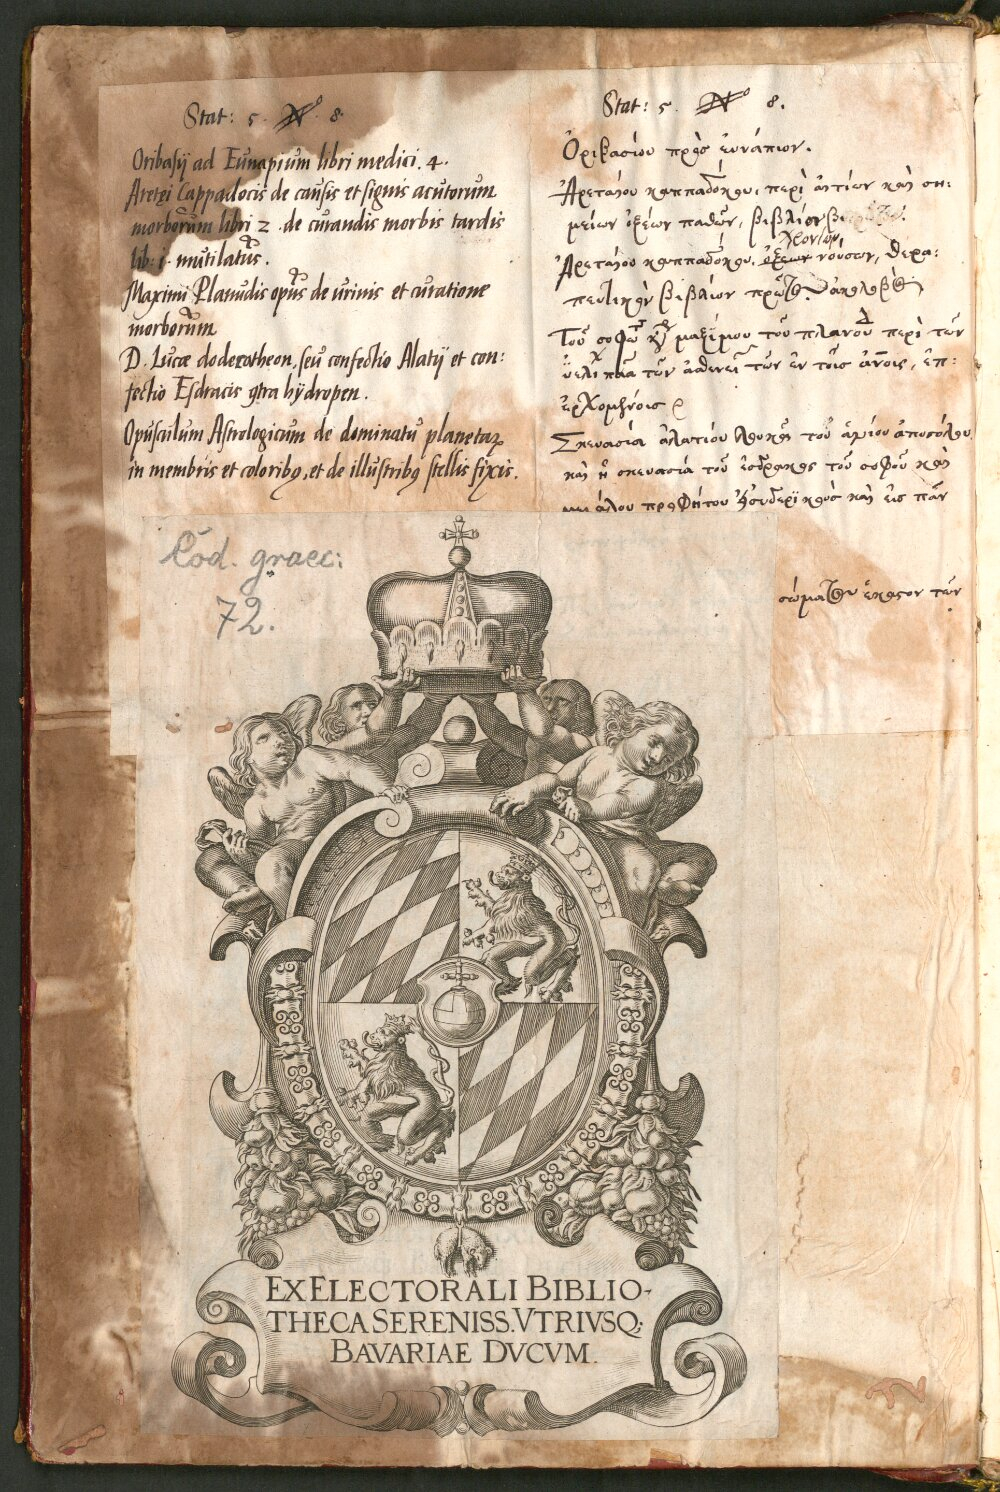 Stat: 5. No 8.
Oribasij ad Eunapium libri medici. 4.
Aretęi Cappadocis de causis et signis acutorum
morborum libri 2. de curandis morbis tardis
lib: 1. mutilatus.
Maximi Planudis opus de urinis et curatione
morborum
D. Lucæ dodecatheon, seu confectio Alatij et con:
fectio Esdracis ꝯtra hÿdropen.
Opusculum Astrologicum de dominatu planetaꝝ
in membris et coloribꝰ, et de illustribꝰ stellis fixis.
Stat: 5. No 8.
Ὀριβασίου πρὸς εὐνάπιον.
Ἀρεταίου καππαδόκου, περὶ αἰτίων καὶ ση:
μείων ὀξέων παθῶν, βιβλίον
Ἀρεταίου καππαδόκου, ὀξέων χρονίων νούσων, θερα:
πευτικὸν βιβλίον πρῶτον
Τοῦ σοφωτάτου κυροῦ μαξίμου τοῦ πλανούδη περὶ τῶν
τῶν ἀσθενειῶν τῶν ἐν τοῖς ἀνοις, ἐπ:
ερχομένοις
Σκευασία ἁλατίου λουκᾶ τοῦ ἁγίου ἀποστόλου
καὶ ἡ σκευασία τοῦ ἐσδρακος τοῦ σοφοῦ καὶ
μεγάλου προφήτου καὶ εἰς πᾶν
σώματος ἕκαστον τῶν
Cod. graec:
72.
EX ELECTORALI BIBLIO-
THECA SERENISS. VTRIVSQ;
BAVARIAE DVCVM.